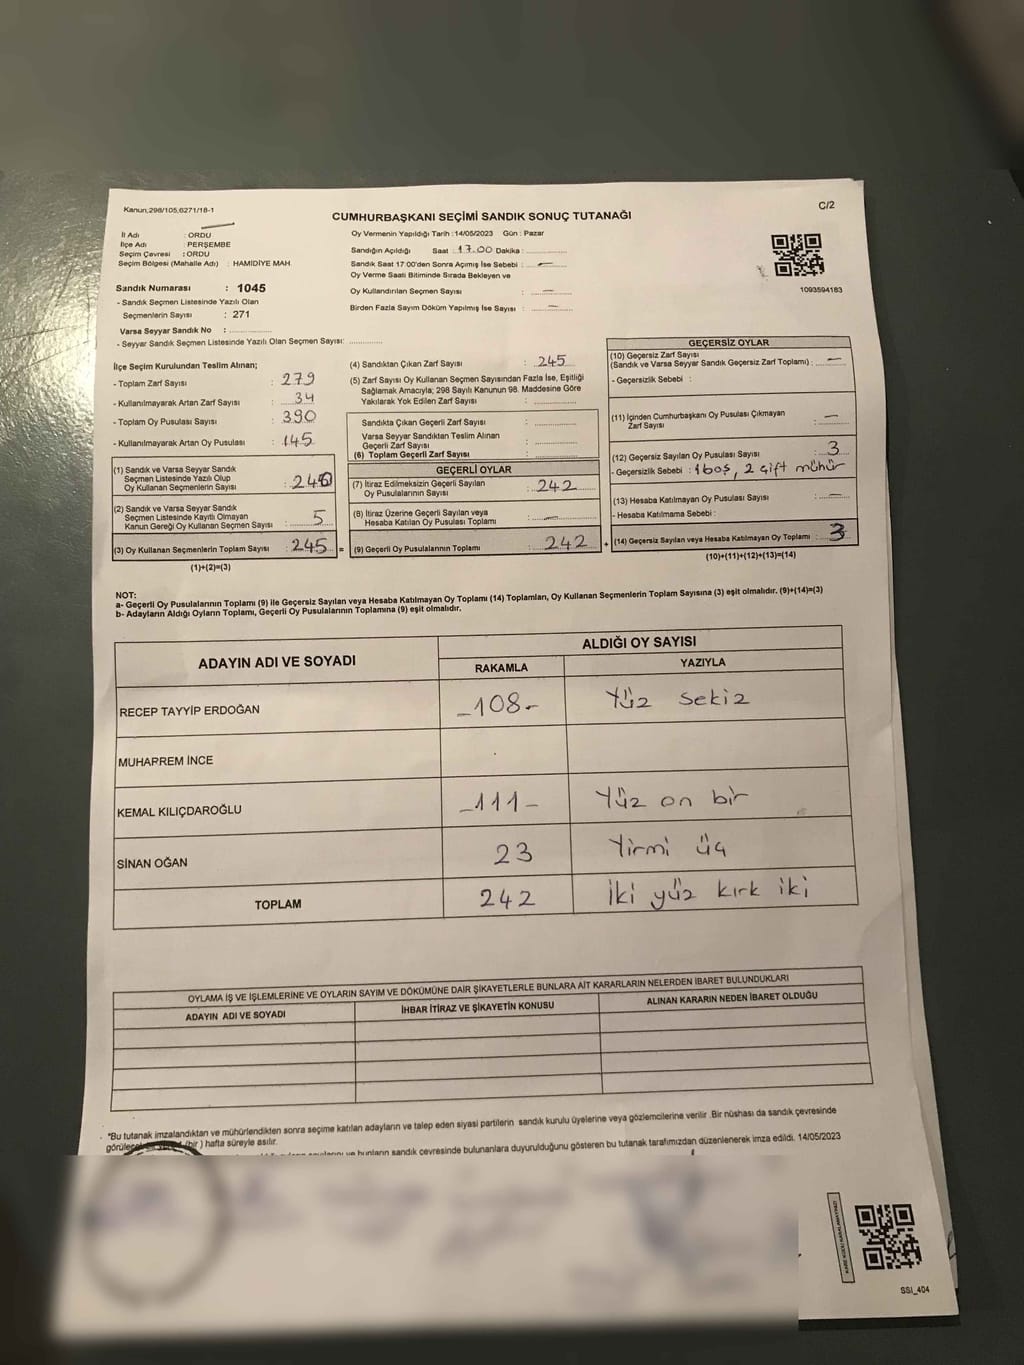 Kanun;298/105,6271/18-1
C/2
CUMHURBAŞKANI SEÇİMİ SANDIK SONUÇ TUTANAĞI
İl Adı : ORDU
İlçe Adı : PERŞEMBE
Seçim Çevresi : ORDU
Seçim Bölgesi (Mahalle Adı) : HAMİDİYE MAH.
Sandık Numarası : 1045
- Sandık Seçmen Listesinde Yazılı Olan
Seçmenlerin Sayısı : 271
Varsa Seyyar Sandık No : ..................
- Seyyar Sandık Seçmen Listesinde Yazılı Olan Seçmen Sayısı: ..............
Oy Vermenin Yapıldığı Tarih : 14/05/2023 Gün : Pazar
Sandığın Açıldığı Saat : 17.00 Dakika : ..............
Sandık Saat 17:00'den Sonra Açımış İse Sebebi : —
Oy Verme Saati Bitiminde Sırada Bekleyen ve
Oy Kullandırılan Seçmen Sayısı : —
Birden Fazla Sayım Döküm Yapılmış İse Sayısı : —
1093594183
İlçe Seçim Kurulundan Teslim Alınan;
- Toplam Zarf Sayısı : 279
- Kullanılmayarak Artan Zarf Sayısı : 34
- Toplam Oy Pusulası Sayısı : 390
- Kullanılmayarak Artan Oy Pusulası : 145
(1) Sandık ve Varsa Seyyar Sandık
Seçmen Listesinde Yazılı Olup
Oy Kullanan Seçmenlerin Sayısı : 240
(2) Sandık ve Varsa Seyyar Sandık
Seçmen Listesinde Kayıtlı Olmayan
Kanun Gereği Oy Kullanan Seçmen Sayısı : 5
(3) Oy Kullanan Seçmenlerin Toplam Sayısı : 245 =
(1)+(2)=(3)
(4) Sandıktan Çıkan Zarf Sayısı : 245
(5) Zarf Sayısı Oy Kullanan Seçmen Sayısından Fazla İse, Eşitliği
Sağlamak Amacıyla; 298 Sayılı Kanunun 98. Maddesine Göre
Yakılarak Yok Edilen Zarf Sayısı : ..............
Sandıkta Çıkan Geçerli Zarf Sayısı : ..............
Varsa Seyyar Sandıktan Teslim Alınan
Geçerli Zarf Sayısı : ..............
(6) Toplam Geçerli Zarf Sayısı : ..............
GEÇERLİ OYLAR
(7) İtiraz Edilmeksizin Geçerli Sayılan
Oy Pusulalarının Sayısı : 242
(8) İtiraz Üzerine Geçerli Sayılan veya
Hesaba Katılan Oy Pusulası Toplamı : —
(9) Geçerli Oy Pusulalarının Toplamı : 242 +
GEÇERSİZ OYLAR
(10) Geçersiz Zarf Sayısı
(Sandık ve Varsa Seyyar Sandık Geçersiz Zarf Toplamı) : —
- Geçersizlik Sebebi :
(11) İçinden Cumhurbaşkanı Oy Pusulası Çıkmayan
Zarf Sayısı : —
(12) Geçersiz Sayılan Oy Pusulası Sayısı : 3
- Geçersizlik Sebebi : 1boş, 2 çift mühür
(13) Hesaba Katılmayan Oy Pusulası Sayısı : —
- Hesaba Katılmama Sebebi :
(14) Geçersiz Sayılan veya Hesaba Katılmayan Oy Toplamı : 3
(10)+(11)+(12)+(13)=(14)
NOT:
a- Geçerli Oy Pusulalarının Toplamı (9) ile Geçersiz Sayılan veya Hesaba Katılmayan Oy Toplamı (14) Toplamları, Oy Kullanan Seçmenlerin Toplam Sayısına (3) eşit olmalıdır. (9)+(14)=(3)
b- Adayların Aldığı Oyların Toplamı, Geçerli Oy Pusulalarının Toplamına (9) eşit olmalıdır.
ADAYIN ADI VE SOYADI
ALDIĞI OY SAYISI
RAKAMLA YAZIYLA
RECEP TAYYİP ERDOĞAN -108- Yüz sekiz
MUHARREM İNCE
KEMAL KILIÇDAROĞLU -111- Yüz on bir
SİNAN OĞAN 23 Yirmi üç
TOPLAM 242 İki yüz kırk iki
OYLAMA İŞ VE İŞLEMLERİNE VE OYLARIN SAYIM VE DÖKÜMÜNE DAİR ŞİKAYETLERLE BUNLARA AİT KARARLARIN NELERDEN İBARET BULUNDUKLARI
ADAYIN ADI VE SOYADI İHBAR İTİRAZ VE ŞİKAYETİN KONUSU ALINAN KARARIN NEDEN İBARET OLDUĞU
*Bu tutanak imzalandıktan ve mühürlendikten sonra seçime katılan adayların ve talep eden siyasi partilerin sandık kurulu üyelerine veya gözlemcilerine verilir .Bir nüshası da sandık çevresinde
(bir ) hafta süreyle asılır.
ve bunların sandık çevresinde bulunanlara duyurulduğunu gösteren bu tutanak tarafımızdan düzenlenerek imza edildi. 14/05/2023
SSI_404